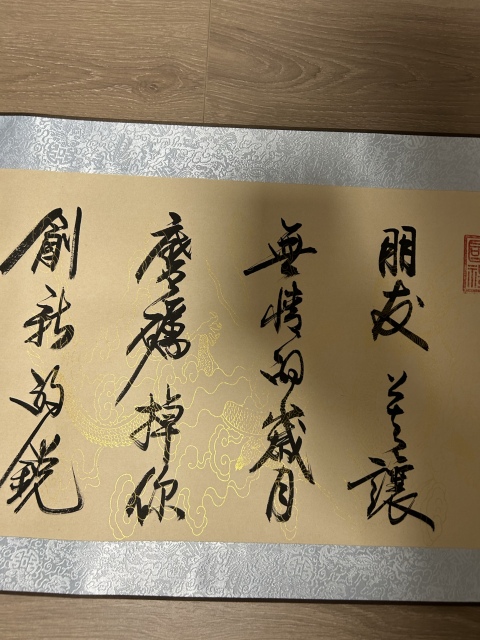 朋友莫讓
無情的歲月
磨礪掉你
創新的銳